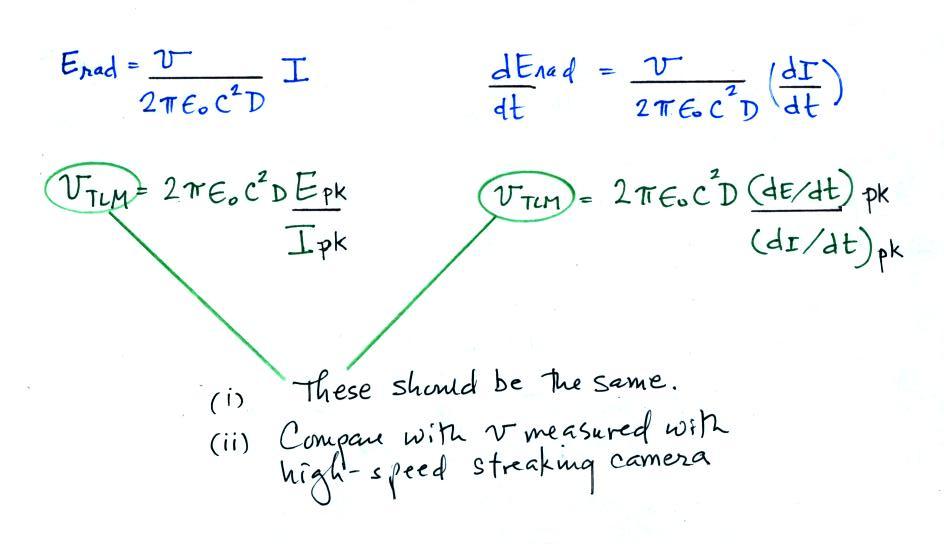 E_rad = v / 2πε₀c²D I    dE_rad/dt = v / 2πε₀c²D (dI/dt)
v_TLM = 2πε₀c²D E_pk / I_pk    v_TLM = 2πε₀c²D (dE/dt)_pk / (dI/dt)_pk
(i) These should be the same.
(ii) Compare with v measured with
high-speed streaking camera